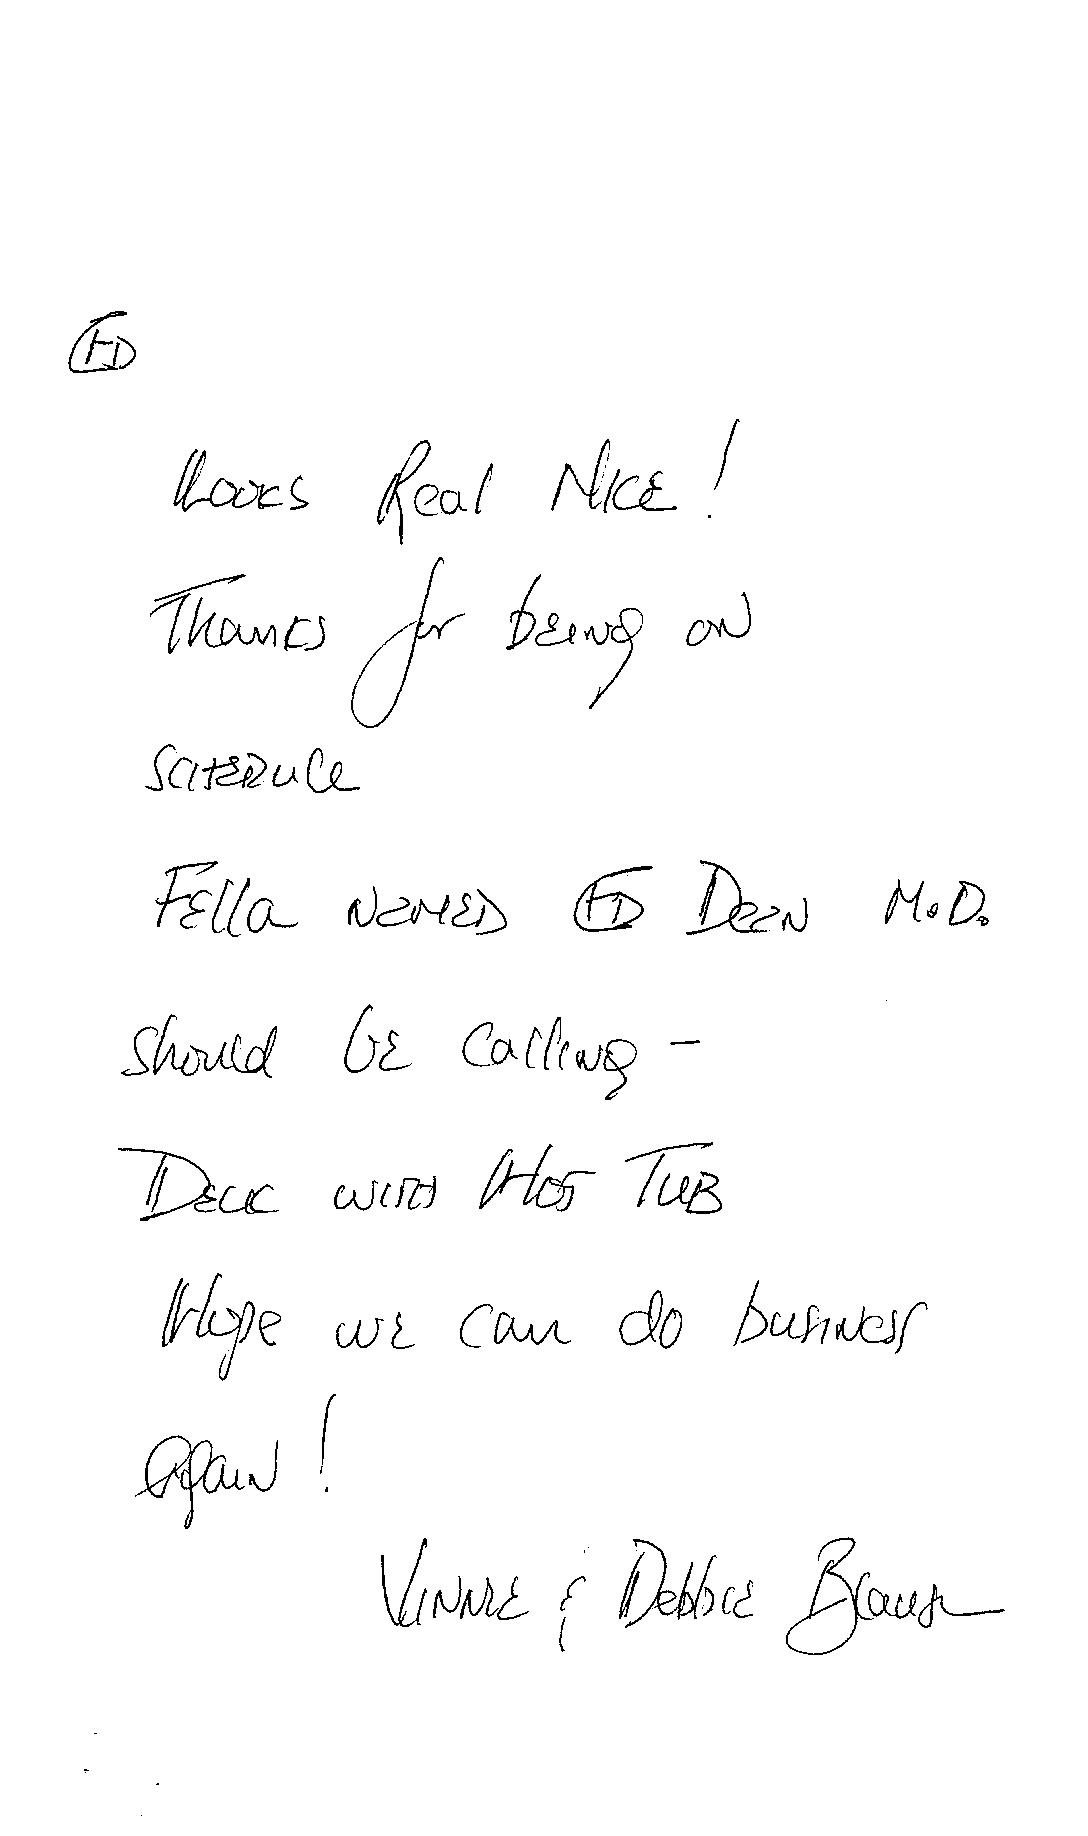 ED
Looks Real NICE!
Thanks for being on
SCHEDULE
Fella NAMED ED DEEN M.D.
should be calling -
Deck with Hot TUB
Hope we can do business
again!
VINNIE & Debbie